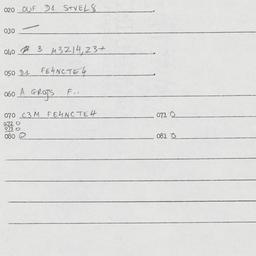 020 OUF D1 STVEL8
030 —
040 # 3 43214,23+
050 D1 FE4NCTE4
060 A GROTS F..
070 C3M FE4NCTE4 071 0
072 0
073 0
080 0 081 0